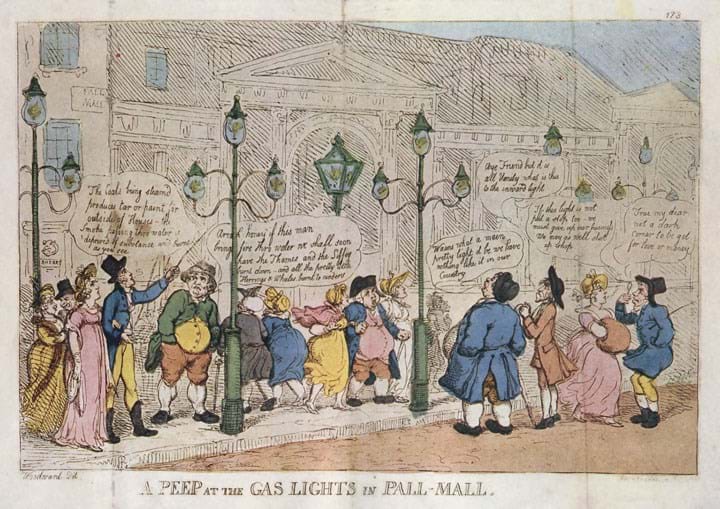 173
PALL
MALL
The Coals being steam'd
produces tar or paint for
outside of Houses - the
Smoke passing thro water is
deprived of substance and burns
as you see
Arrah honey if this man
bring fire thro water we shall soon
have the Thames and the Liffey
burnt down - and all the pretty little
Herrings & Whales burnt to cinders
Wauns what a main
pretty light it be we have
nothing like it in our
Country
Aye Friend but it is
all Vanity what is this
to the inward light
If this light is not
put a stop to - we
must give up our business
We may as well shut
up shop
True my dear
not a dark
corner to be got
for love or money
Woodward Del
A PEEP AT THE GAS LIGHTS IN PALL-MALL.